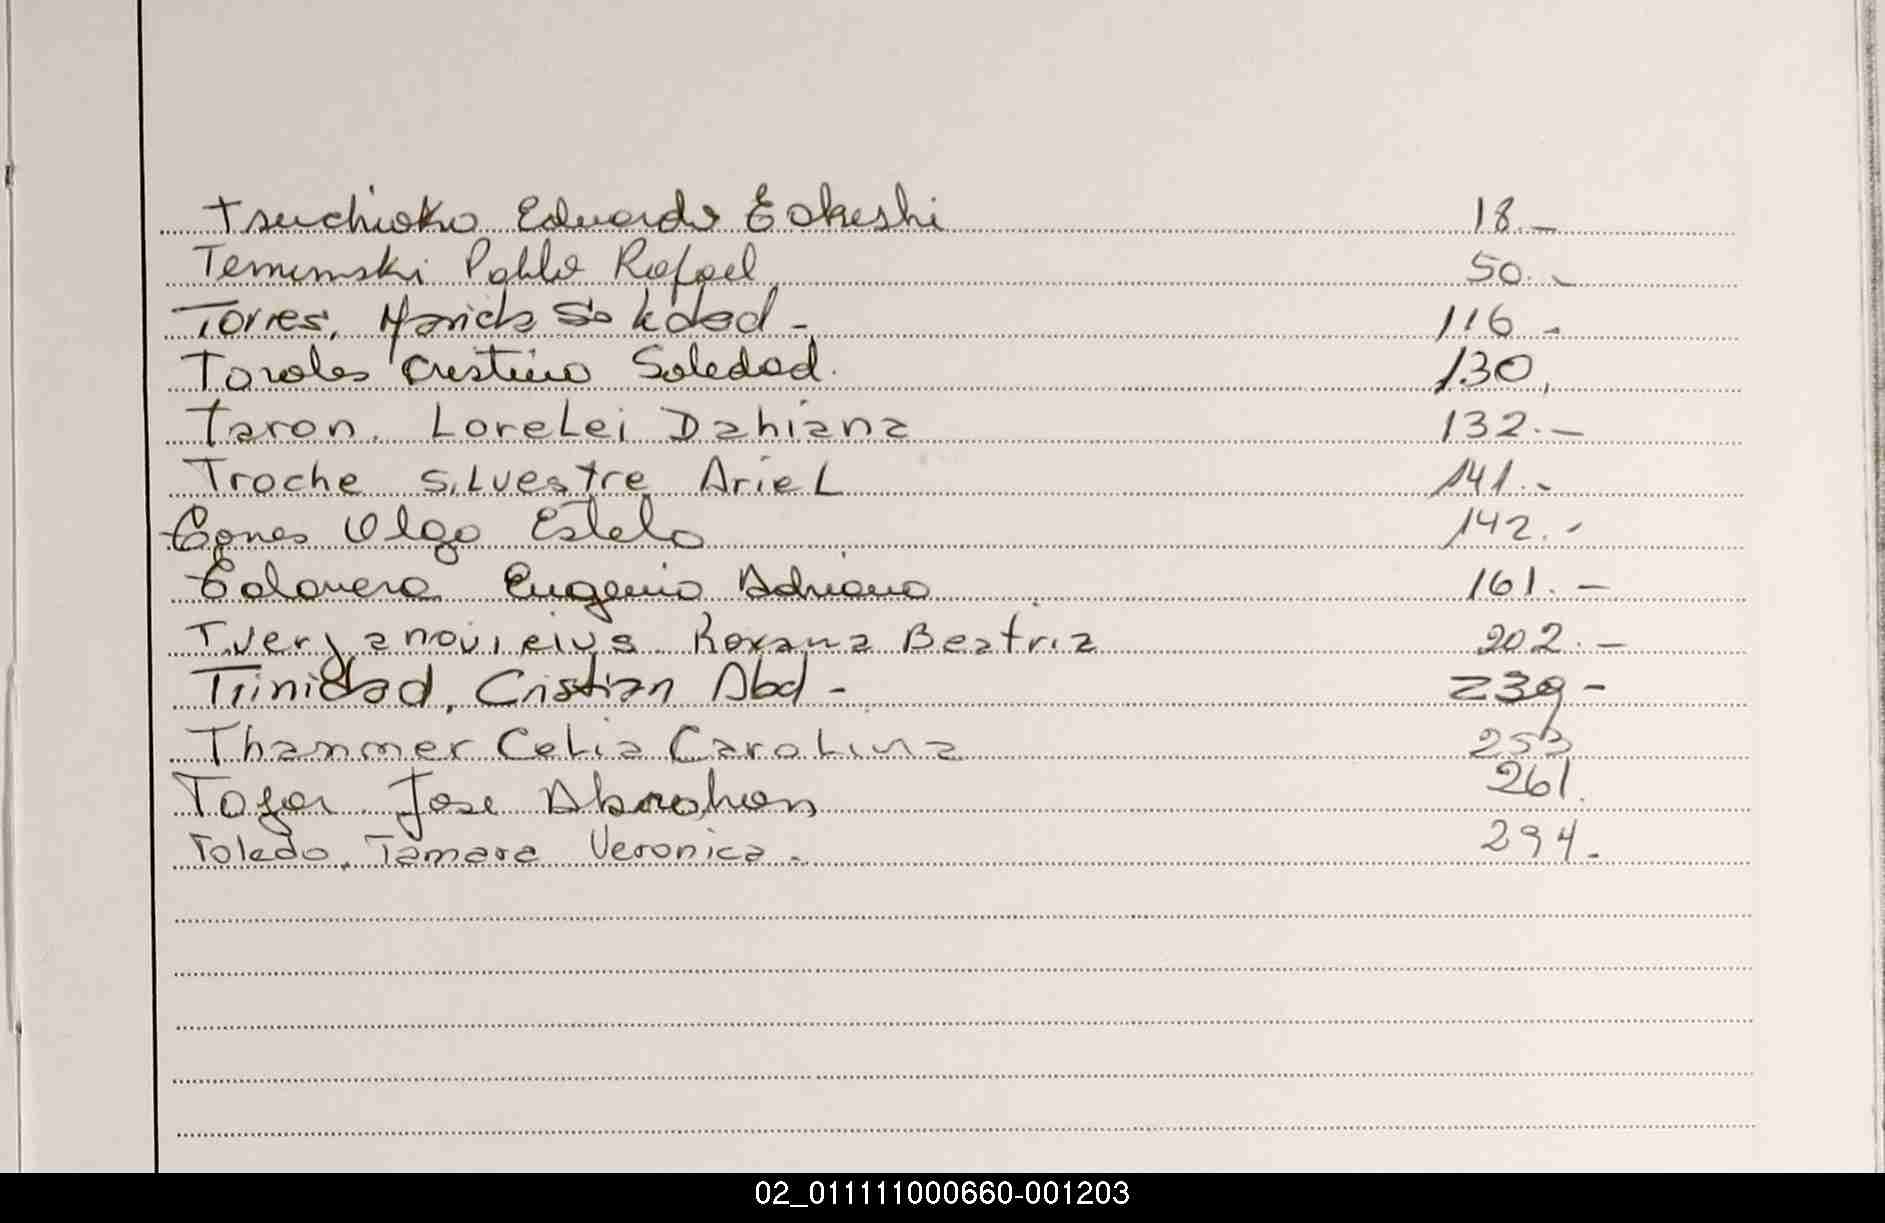 Tsuchioko Eduardo Takeshi 18.-
Teminski Pablo Rafael 50.-
Torres, María Soledad - 116.-
Cristina Soledad. 130.
Taron. Lorelei Dahiana 132.-
Troche Silvestre Ariel 141.-
Olga Estela 142.-
Talavera Eugenio Adriano 161.-
Roxana Beatriz 202.-
Trinidad, Cristian Abel - 239-
Thammer Celia Carolina 253
José Abraham 261.
Toledo, Tamara Veronica - 294-
02_011111000660-001203